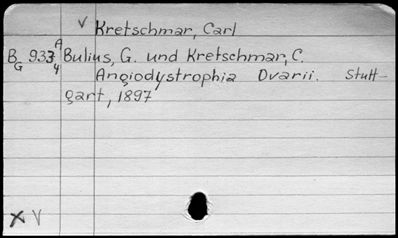 √ Kretschmar, Carl
A
BG 933 Bulius, G. und Kretschmar, C.
4
Angiodystrophia Ovarii. Stutt-
gart, 1897
X V